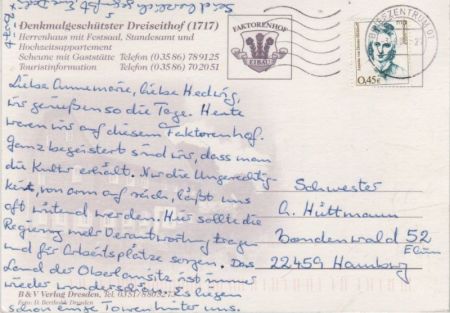 Denkmalgeschützter Dreiseithof (1717)
Herrenhaus mit Festsaal, Standesamt und
Hochzeitsappartement
Scheune mit Gaststätte Telefon (03586) 789125
Touristinformation Telefon (03586) 702051
FAKTORENHOF
EIBAU
BRIEFZENTRUM 01
0,45€
Liebe Annemarie, liebe Hedwig,
wir genießen so die Tage. Heute
waren wir auf diesem Faktorenhof.
Ganz begeistert sind wir, dass man
die Kultur erhält. Nur die Ungerechtig-
keit, von arm auf reich, läßt uns
oft wütend werden. Hier sollte die
Regierung mehr Verantwortung tragen
und für Arbeitsplätze sorgen. Das
Land der Oberlausitz ist immer
wieder wunderschön. Es liegen
schon einige Touren hinter uns.
Schwester
A. Hüttmann
Bondenwald 52
22459 Hamburg
B & V Verlag Dresden, Tel.
Foto: D. Berthold, Dresden